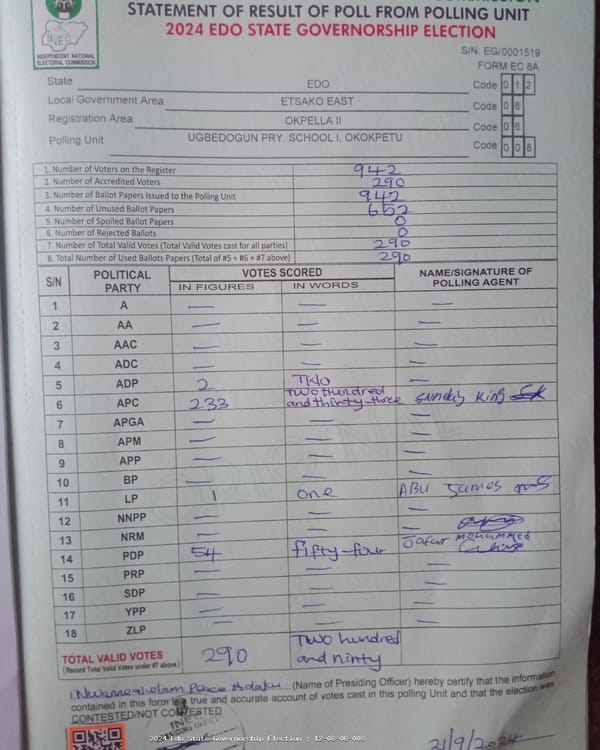 STATEMENT OF RESULT OF POLL FROM POLLING UNIT
2024 EDO STATE GOVERNORSHIP ELECTION
INEC
INDEPENDENT NATIONAL
ELECTORAL COMMISSION
S/N: EG/0001519
FORM EC 8A
State EDO Code 0 1 2
Local Government Area ETSAKO EAST Code 0 8
Registration Area OKPELLA II Code 0 6
Polling Unit UGBEDOGUN PRY. SCHOOL I, OKOKPETU Code 0 0 8
1. Number of Voters on the Register 942
2. Number of Accredited Voters 290
3. Number of Ballot Papers Issued to the Polling Unit 942
4. Number of Unused Ballot Papers 652
5. Number of Spoiled Ballot Papers 0
6. Number of Rejected Ballots 0
7. Number of Total Valid Votes (Total Valid Votes cast for all parties) 290
8. Total Number of Used Ballots Papers (Total of #5 + #6 + #7 above) 290
S/N POLITICAL PARTY VOTES SCORED NAME/SIGNATURE OF POLLING AGENT
IN FIGURES IN WORDS
1 A — — —
2 AA — — —
3 AAC — — —
4 ADC — — —
5 ADP 2 TWO —
6 APC 233 Two Hundred and thirty-three Sunday King
7 APGA — — —
8 APM — — —
9 APP — — —
10 BP — — —
11 LP 1 one ABU James
12 NNPP — — —
13 NRM — — —
14 PDP 54 fifty-four Jafar mohammed
15 PRP — — —
16 SDP — — —
17 YPP — — —
18 ZLP — — —
TOTAL VALID VOTES 290 Two hundred and ninty
(Record Total Valid Votes under #7 above)
I, Peace (Name of Presiding Officer) hereby certify that the information
contained in this form is a true and accurate account of votes cast in this polling Unit and that the election was
CONTESTED/NOT CONTESTED
INEC
2024 Edo State Governorship Election : 12-08-06-008
21/9/2024